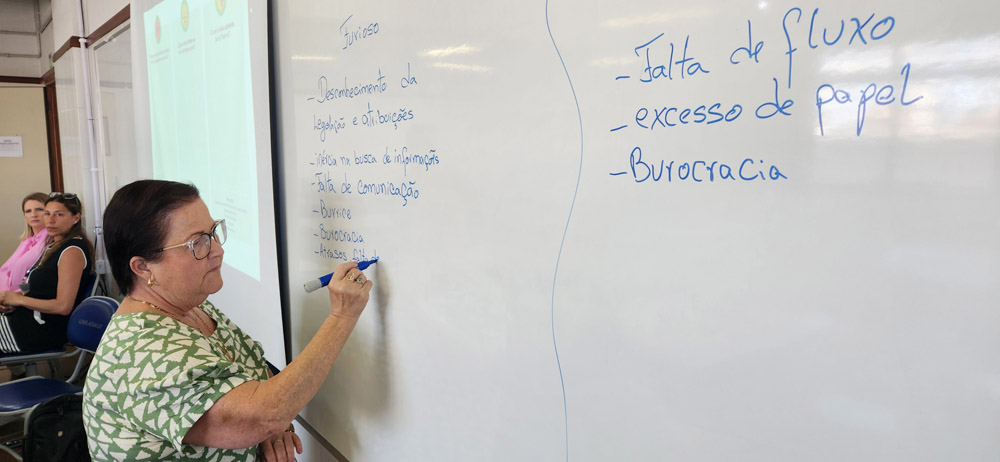 Furioso
- Desconhecimento da
legislação e atribuições
- inércia na busca de informações
- Falta de comunicação
- Burrice
- Burocracia
- Atrasos
- Falta de fluxo
- excesso de papel
- Burocracia